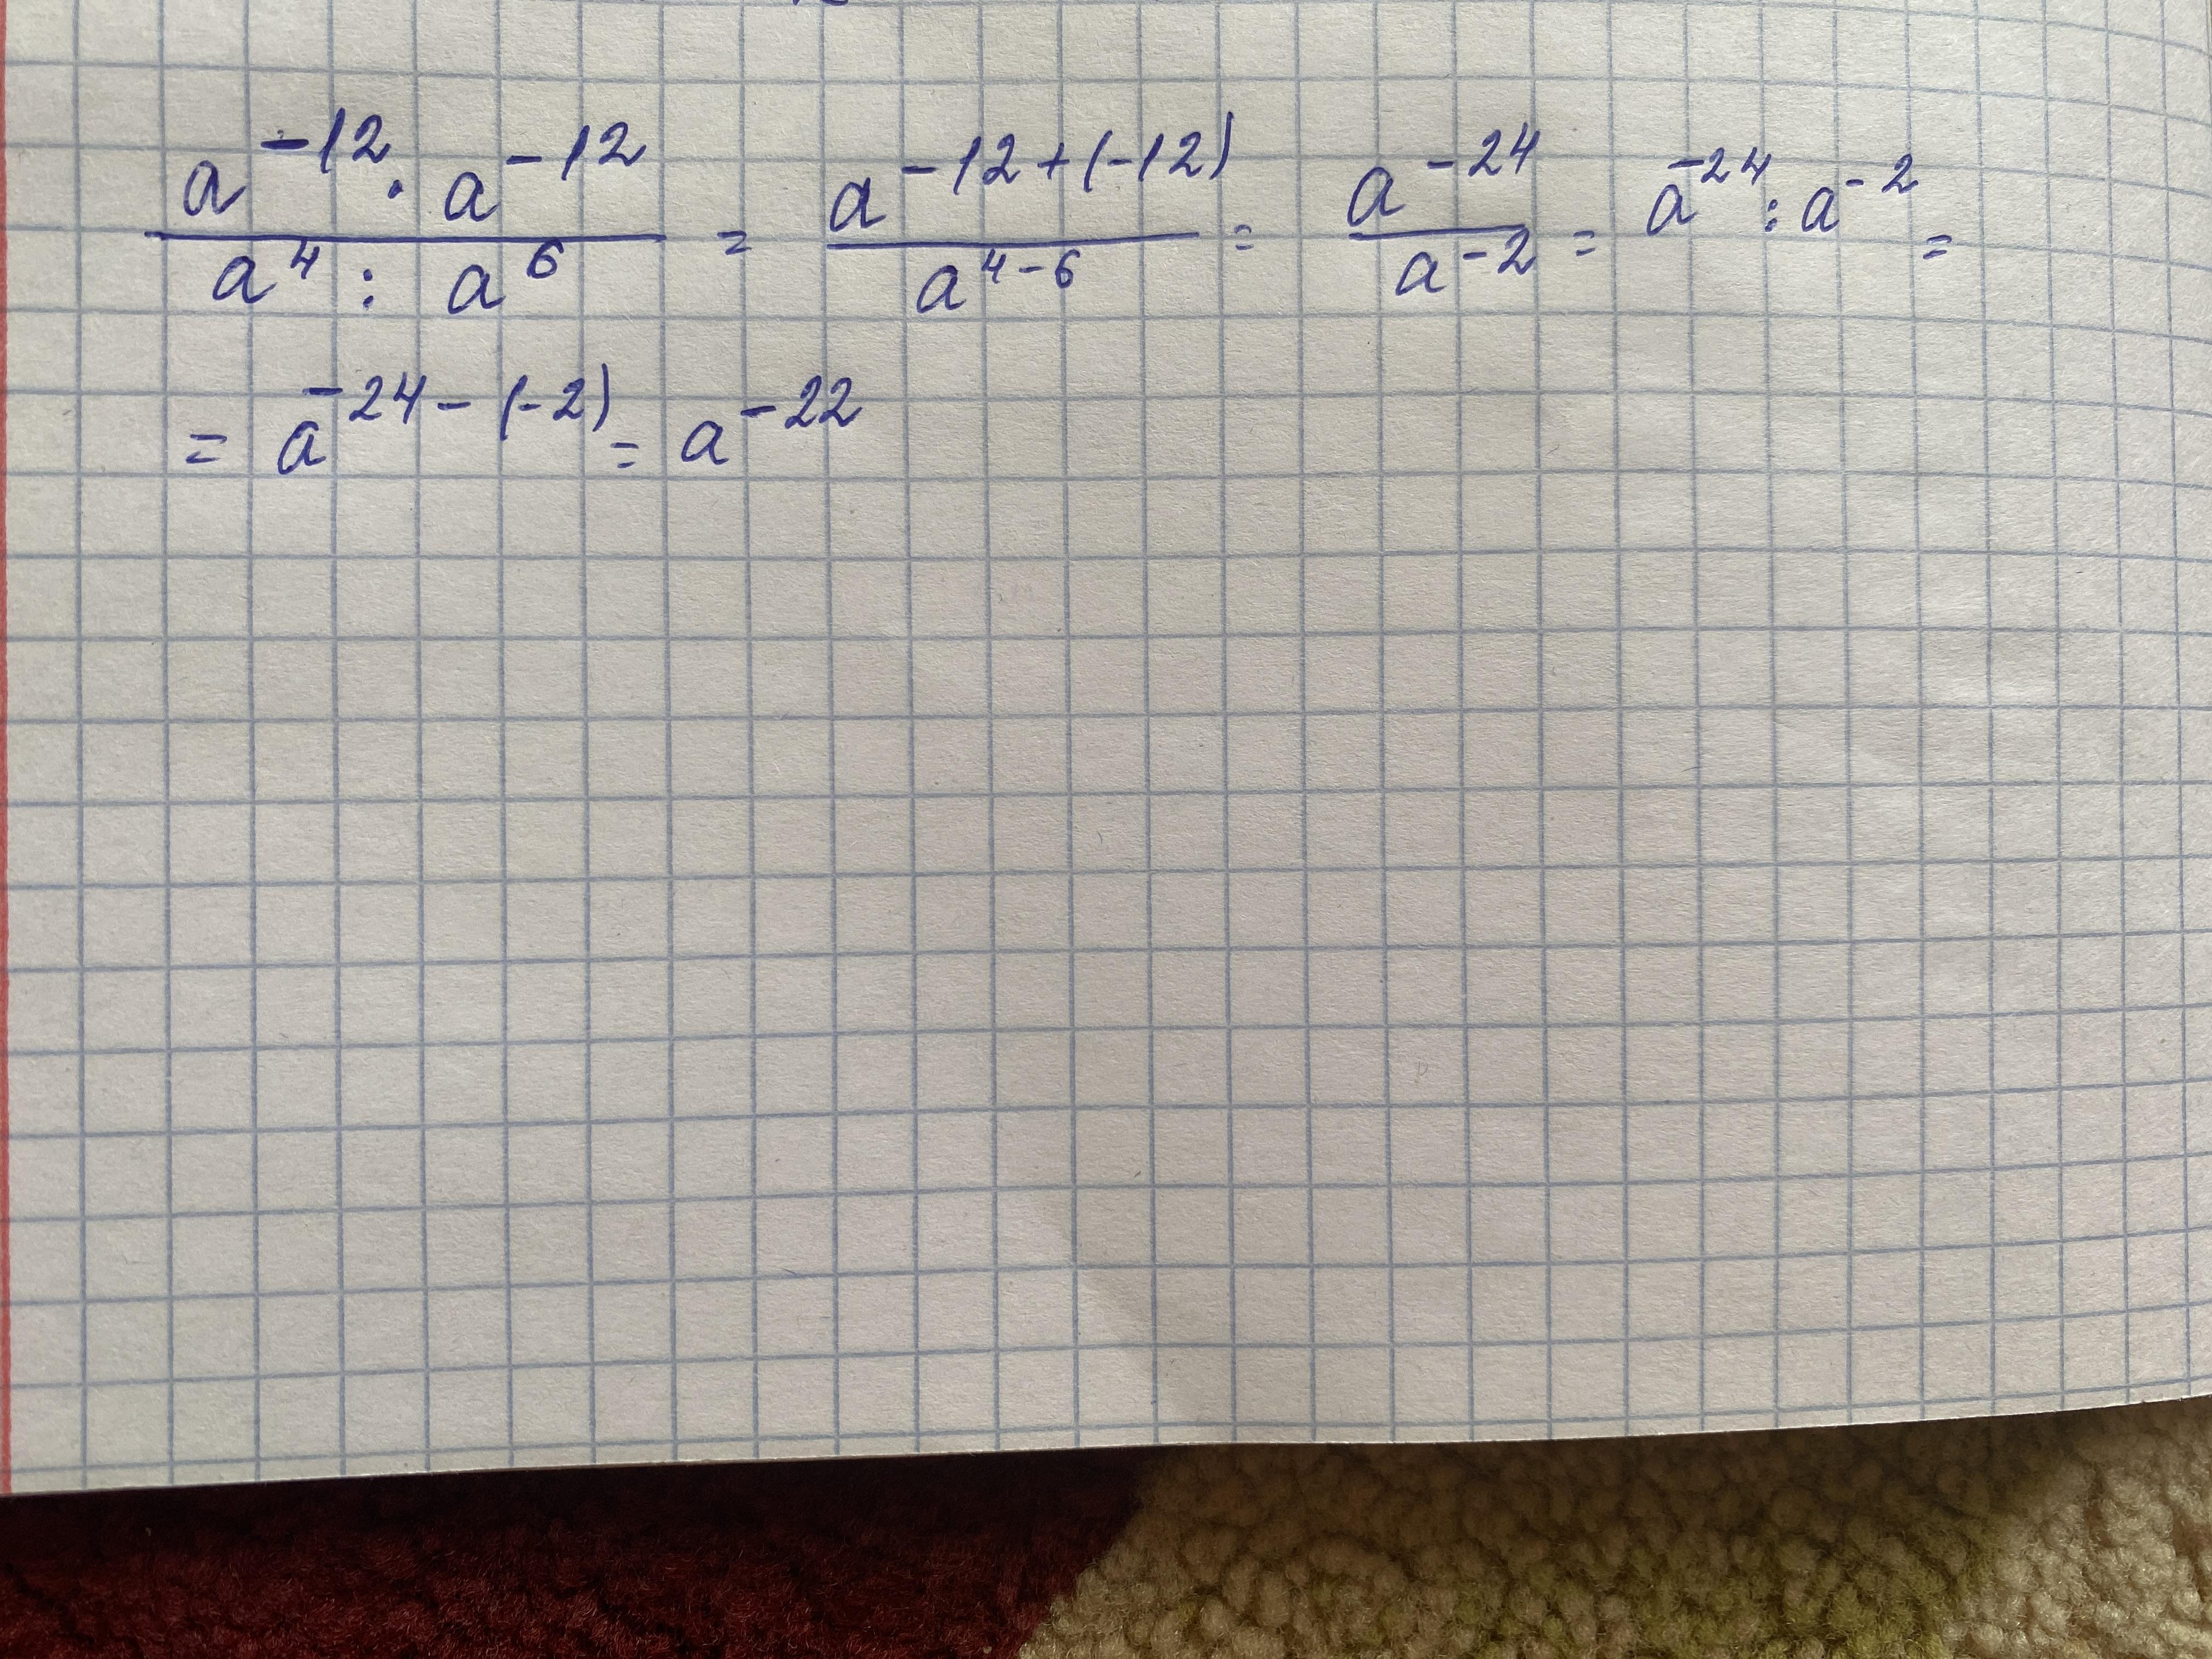 a^{-12} · a^{-12} / a^4 : a^6 = a^{-12+(-12)} / a^{4-6} = a^{-24} / a^{-2} = a^{-24} : a^{-2} =
= a^{-24-(-2)} = a^{-22}